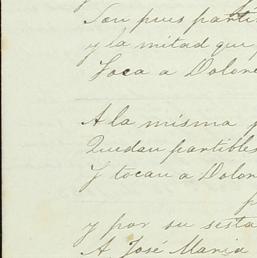 Son pues parti
y la mitad que
Toca a Dolore
A la misma p
Quedan partibles
Y tocan a Dolor
p
y por su sesta
A José Maria